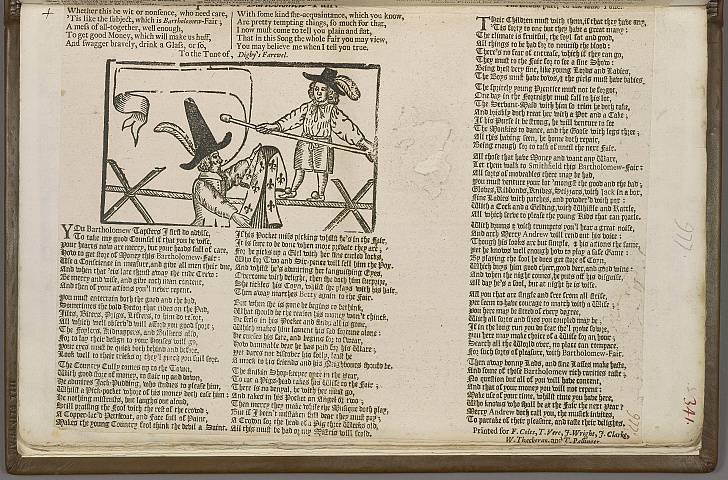 Whether this be wit or nonsense, who need care,
'Tis like the subject, which is Bartholomew-Fair;
A mess of all-together, well enough,
To get good Money, which will make us huff,
And swagger bravely, drink a Glass, or so,
With some kind she-acquaintance, which you know,
Are pretty tempting things, so much for that,
I now must come to tell you plain and flat,
That in this Song the whole Fair you may view,
You may believe me when I tell you true.
To the Tune of, Digby's Farewel.
You Bartholomew Tapsters I first do advise,
To take my good Councel if that you be wise,
Your hearts now are merry, but your heads full of care,
How to get store of Money this Bartholomew-Fair:
Use a Conscience in measure, and give all men their due,
And when that 'tis late thrust away the Crew:
Be merry and wise, and give each man content,
And then of your actions you'l never repent.
You must entertain both the good and the bad,
Sometimes the bold Hector that rides on the Pad,
All which will afford you good sport;
For to lay their designs to your Houses will go,
Your eyes must be quick both before and behind,
Look well to their tricks or they'll prove you full
The Country Cully comes up to the Town,
With good store of money,
He admires Jack-Pudding, who studies to please him,
Whilst a Pick-pocket of his money doth ease him:
He nothing mistrusts, but laughs out aloud,
Still praising the Fool with the rest of the crowd;
Makes the young Country fool think the devil a Saint.
His Pocket miss picking whilst he's in the Fair,
It is sure to be done when more private they are;
For he picks up a Girl with her fine curled locks,
Who for Two and Six-pence will sell him the Pox;
And whilst he's admiring her languishing Eyes,
Overcome with delight, then she doth him surprize,
She tickles his Coyn, whilst she plays with his hair,
Then away marches Betty again to the Fair.
But when she is gone he begins to bethink,
What should be the reason his money won't chink,
He feels in his Pocket and finds all is gone,
Which makes him lament his sad fortune alone:
He curses his fate, and begins for to swear,
How damnable dear he has paid for his Ware;
Yet dares not discover his folly, lest he
A mock to his friends and his Neighbours should be.
The Shop-keeper once in the year,
To eat a Pigs-head takes his Wife to the Fair;
There is no denial, he with her must go,
And takes in his Pocket an Angel or two:
Then merry they make while the Musick doth play,
But if I ben't mistaken full dear they must pay;
A Crown for the head of a Pig three Weeks old,
All this must be had or my Mistris will scold.
Their Children must with them, if that they have any,
'Tis forty to one but they have a great many:
The climate is fruitful, the soyl fat and good,
All things to be had for to nourish the blood:
There's no fear of encrease, which if they can go,
They must to the Fair for to see a fine Show:
Being drest very fine, like young Lords and Ladies,
The Boys must have bows, & the girls must have babies.
The spricely young Prentice must not be forgot,
One day in the Fortnight must fall to his lot,
The Servant-Maid with him so trim he doth take,
And lovingly doth treat her with a Pot and a Cake;
If his Purse it be strong, he will venture to see
The Monkies to dance, and the Goose with legs three;
All this having seen, he home doth repair,
Being enough for to talk of until the next Fair.
All those that have Money and want any Ware,
Let them walk to Smithfield this Bartholomew-Fair:
All sorts of moveables there may be had,
You must venture your lot 'mongst the good and the bad;
Gloves, Ribbonds, Knives, Scizzars, with Jack in a box,
Fine Ladies with patches, and powder'd with pox:
With a Cock and a Gelding, with Whistle and Rattle,
All which serve to please the young Kids that can prattle.
With drums & with trumpets you'l hear a great noise,
And arch Merry Andrew will rend out his voice:
Though his looks are but simple, & his actions the same,
Yet he knows well enough how to play a safe Game:
By playing the fool he does get store of Coyn,
Which buys him good cheer, good beer, and good wine:
And when the night comes, he puts off his disguise,
All day he's a fool, but at night he is wise.
All you that are single and free from all strife,
You seem to have courage to match with a Wife;
You here may be fitted of every degree,
With all sorts and sizes you coupled may be:
If in the long run you do fear she'l prove sowre,
You here may make choice of a Wife for an hour;
Search all the World over, no place can compare,
For such sorts of pleasure, with Bartholomew-Fair.
Then away bonny Lads, and fine Lasses make haste,
And some of those Bartholomew rich varities taste;
No question but all of you will have content,
And that of your money you will not repent:
Make use of your time, whilst time you have here,
Who knows who shall be at the Fair the next year?
Merry Andrew doth call you, the musick invites,
To partake of their pleasure, and taste their delights.
Printed for F. Coles, T. Vere, J. Wright, J. Clarke,
W. Thackeray, and T. Passinger.